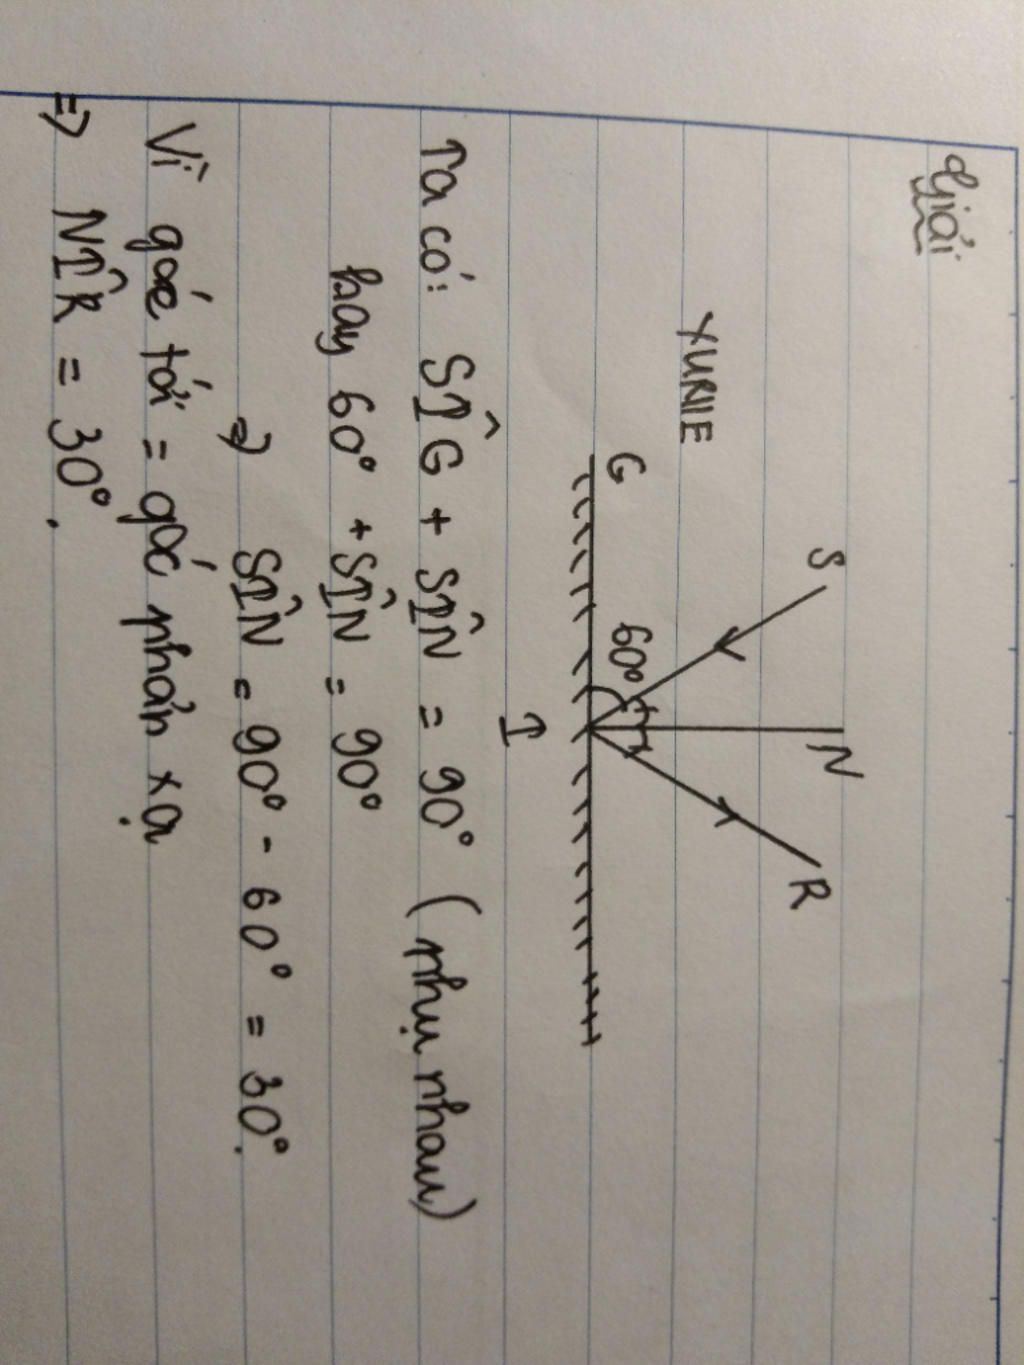 Giải
YURIE
S
N
R
G
60°
I
Ta có: SÎG + SÎN = 90° (nhụ nhau)
hay 60° + SÎN = 90°
=> SÎN = 90° - 60° = 30°.
Vì góc tới = góc phản xạ
=> NÎR = 30°.